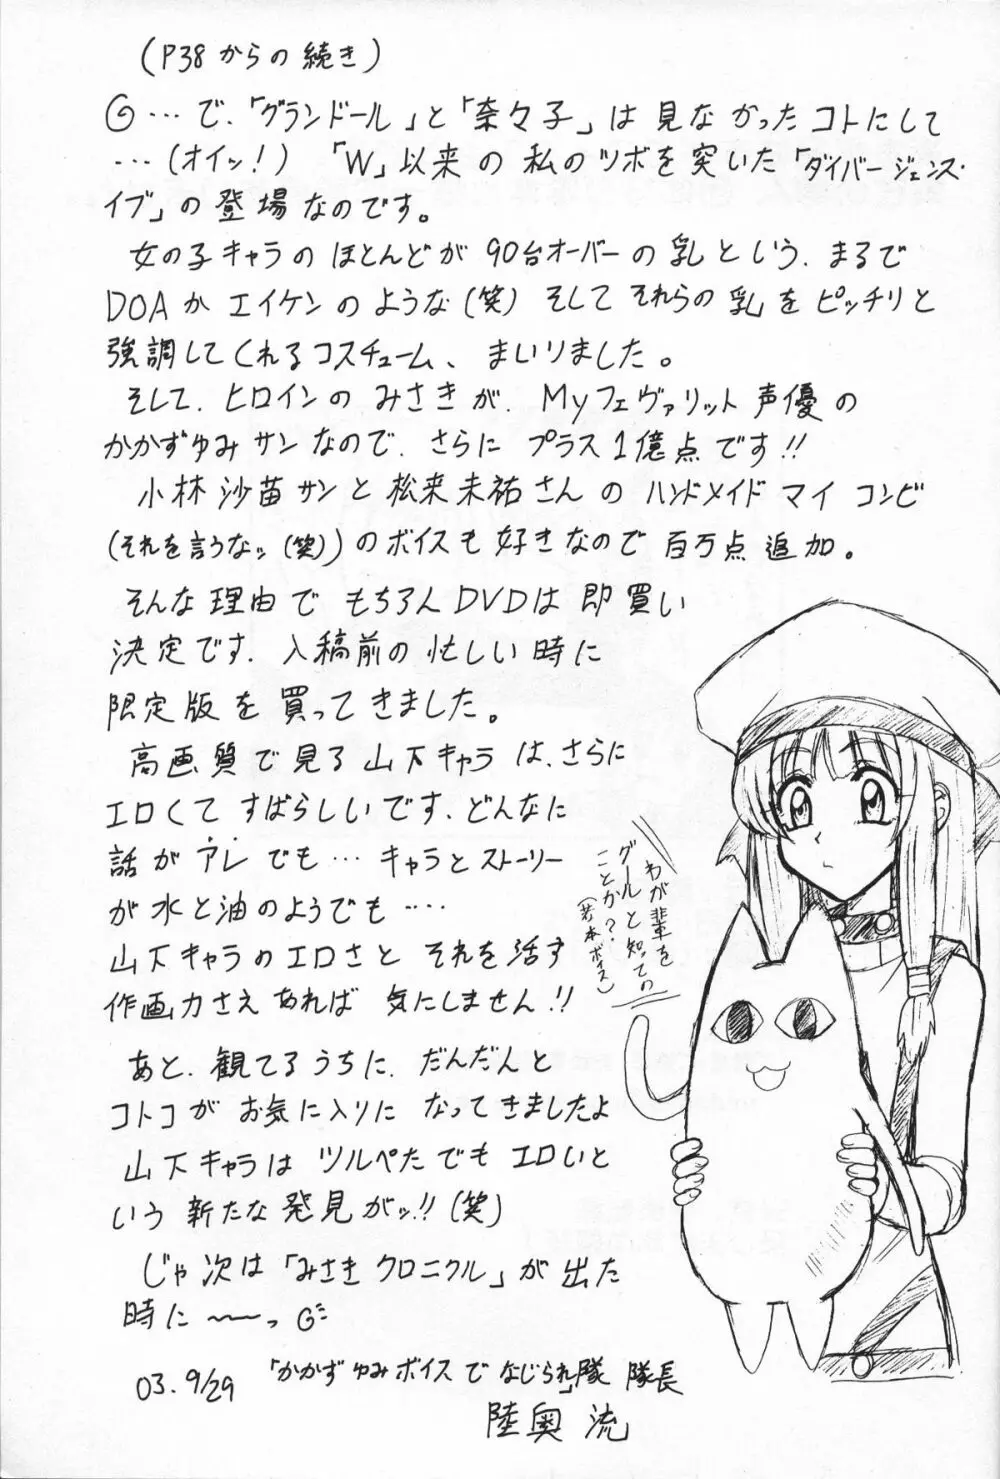 (P38からの続き)
…で、「グランドール」と「奈々子」は見なかったコトにして
…(オイッ!) 「W」以来の私のツボを突いた「ダイバージェンス・
イブ」の登場なのです。
女の子キャラのほとんどが90台オーバーの乳という、まるで
DOAかエイケンのような(笑) そしてそれらの乳をピッチリと
強調してくれるコスチューム、まいりました。
そして、ヒロインのみさきが、Myフェヴァリット声優の
かかずゆみサンなので、さらにプラス1億点です!!
小林沙苗サンと松来未祐さんのハンドメイドマイコンビ
(それを言うなッ(笑))のボイスも好きなので百万点追加。
そんな理由でもちろんDVDは即買い
決定です、入稿前の忙しい時に
限定版を買ってきました。
高画質で見る山下キャラは、さらに
エロくてすばらしいです、どんなに
話がアレでも…キャラとストーリー
が水と油のようでも‥‥
山下キャラのエロさとそれを活す
作画力さえあれば気にしません!!
あと、観てるうちに、だんだんと
コトコがお気に入りになってきましたよ
山下キャラはツルペたでもエロいと
いう新たな発見がッ!!(笑)
じゃ次は「みさきクロニクル」が出た
時に〜〜っ
03.9/29 「かかずゆみボイスでなじられ」隊 隊長
陸奥 流
わが輩を
グールと知っての
ことか?
(若本ボイス)